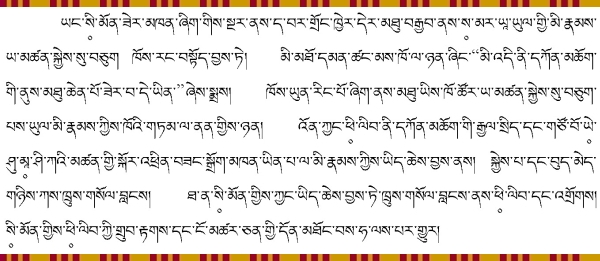 ཡང་སི་མོན་ཟེར་མཁན་ཞིག་གིས་སྔར་ནས་ད་བར་གྲོང་ཁྱེར་དེར་མཐུ་བརྒྱབ་ནས་ས་མར་ཡཱ་ཡུལ་གྱི་མི་རྣམས་
ཡ་མཚན་སྐྱེས་སུ་བཅུག ཁོས་རང་བསྟོད་བྱས་ཏེ། མི་མཐོ་དམན་ཚང་མས་ཁོ་ལ་ཉན་ཞིང་“མི་འདི་ནི་དཀོན་མཆོག་
གི་ནུས་མཐུ་ཆེན་པོ་ཟེར་བ་དེ་ཡིན་”ཞེས་སྨྲས། ཁོས་ཡུན་རིང་པོ་ཞིག་ནས་མཐུ་ཡིས་ཁོ་ཚོར་ཡ་མཚན་སྐྱེས་སུ་བཅུག་
པས་ཡུལ་མི་རྣམས་ཀྱིས་ཁོའི་གཏམ་ལ་ནན་གྱིས་ཉན། འོན་ཀྱང་ཕི་ལིབ་ནི་དཀོན་མཆོག་གི་རྒྱལ་སྲིད་དང་གཙོ་བོ་ཡེ་
ཤུ་མཱ་ཤི་ཀའི་མཚན་གྱི་སྐོར་འཕྲིན་བཟང་སྒྲོག་མཁན་ཡིན་པ་ལ་མི་རྣམས་ཀྱིས་ཡིད་ཆེས་བྱས་ནས། སྐྱེས་པ་དང་བུད་མེད་
གཉིས་ཀས་ཁྲུས་གསོལ་བླངས། ཐ་ན་སི་མོན་གྱིས་ཀྱང་ཡིད་ཆེས་བྱས་ཏེ་ཁྲུས་གསོལ་བླངས་ནས་ཕི་ལིབ་དང་འགྲོགས།
སི་མོན་གྱིས་ཕི་ལིབ་ཀྱི་གྲུབ་རྟགས་དང་ངོ་མཚར་ཅན་གྱི་དོན་མཐོང་བས་ཧ་ལས་པར་གྱུར།